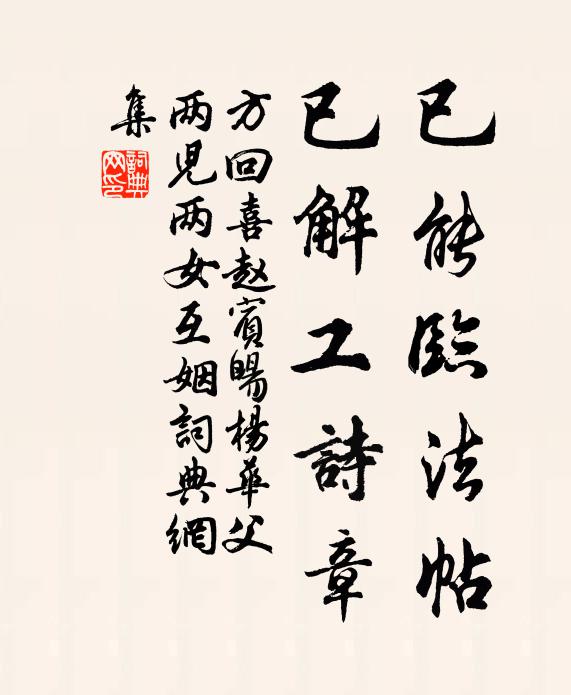 已能臨法帖
已解工詩章
方回喜赵賓暘楊華父
两児两女互姻詞典網
集
詞典网印